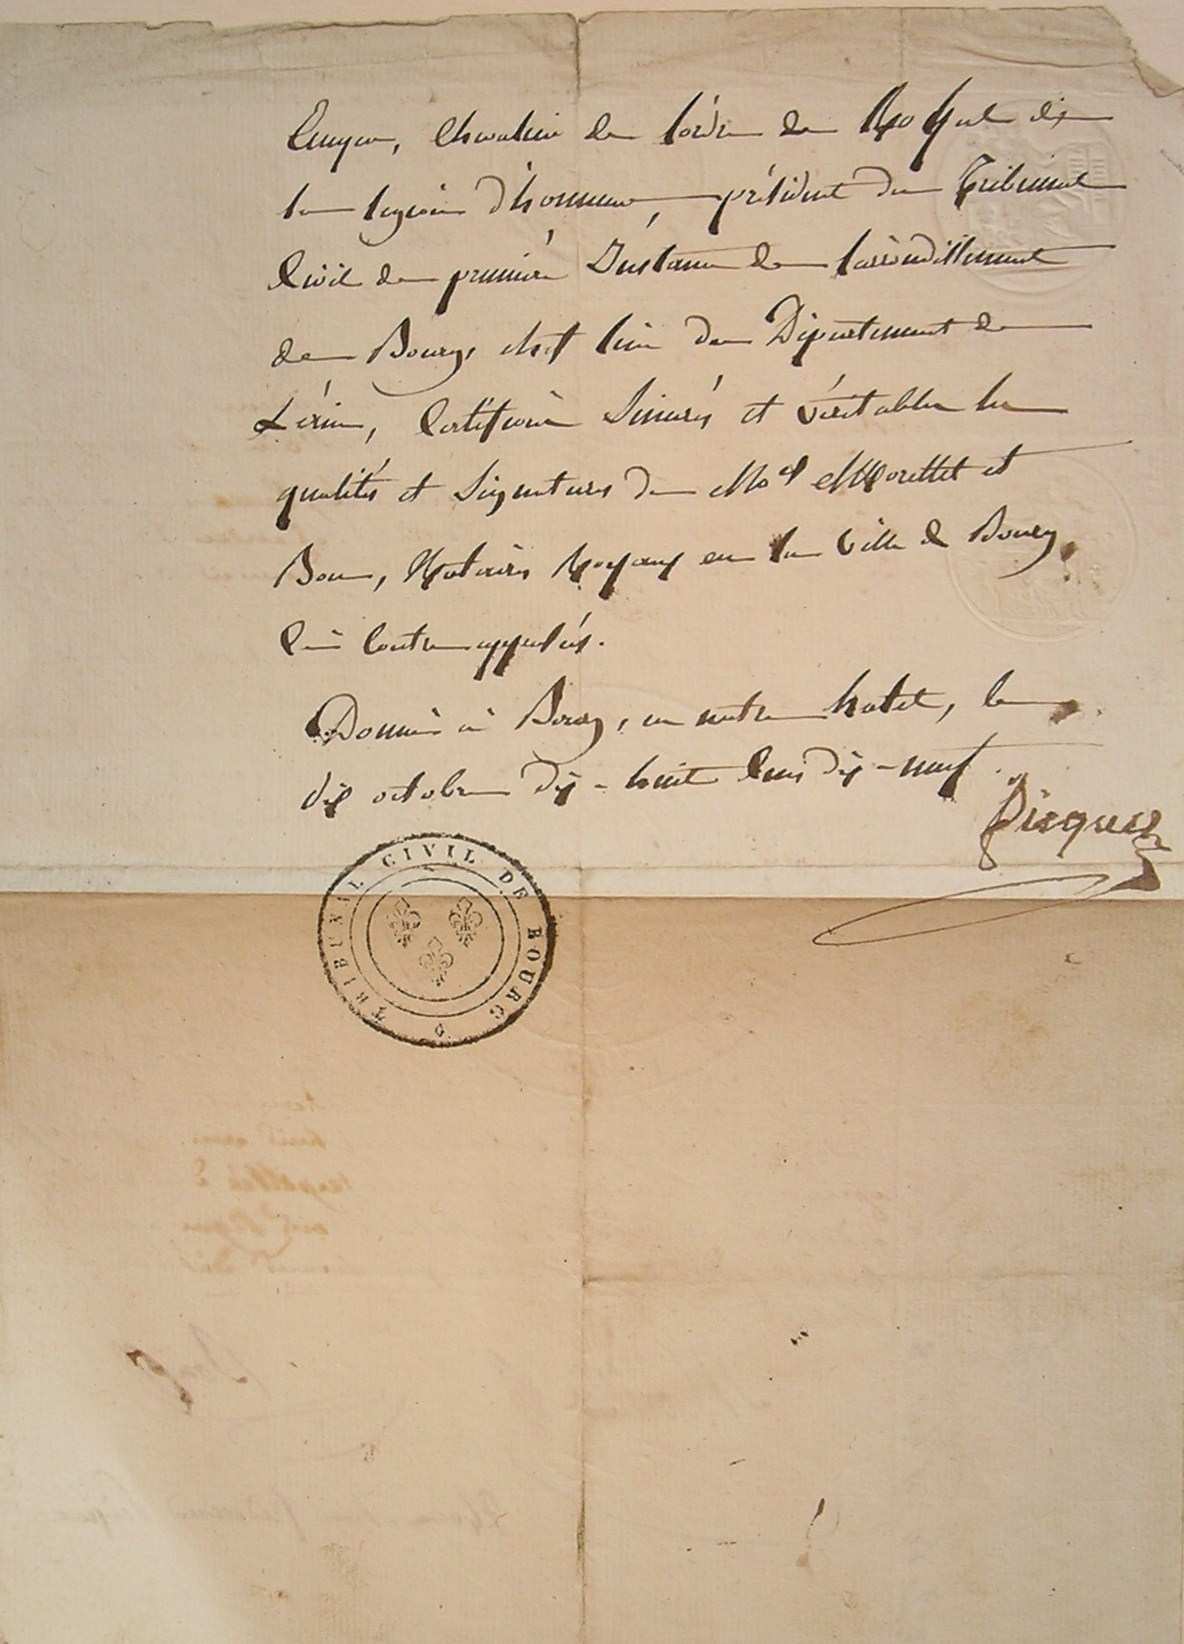 chevalier de l'ordre Royal de
la légion d'honneur, président du Tribunal
Civil de première Instance de l'arrondissement
de Bourg, chef lieu du Département de
L'ain, Certifions Sincères et véritables les
qualités et Signatures de Morellet et
Bon, Notaires Royaux en la Ville de Bourg,
contre appelés.
Donné à Bourg, en notre hotel, le
dix octobre dix-huit Cent dix-neuf.
Picquet
TRIBUNAL CIVIL DE BOURG